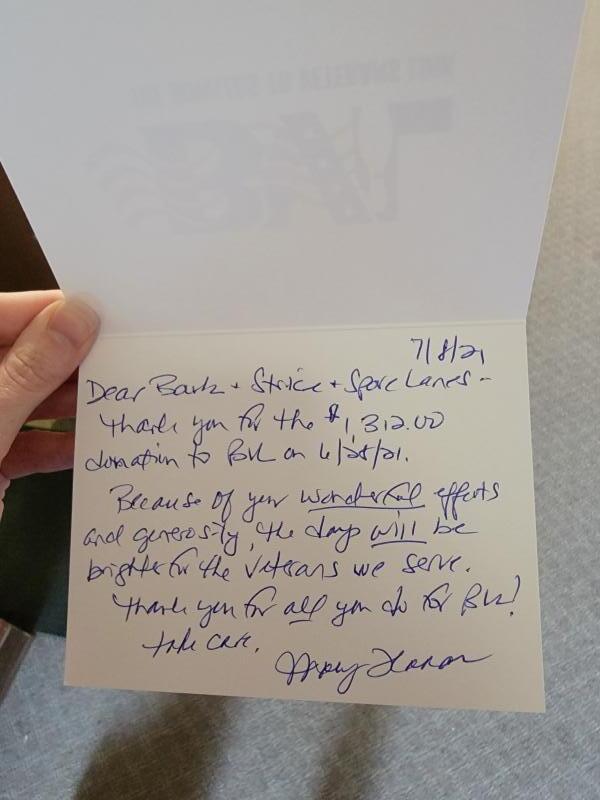 7/8/21
Dear + Strike + Spare Lanes -
Thank you for the $1,312.00
donation to BVL on 6/28/21.
Because of your wonderful efforts
and generosity, the days will be
brighter for the veterans we serve.
Thank you for all you do for BVL!
Take care,